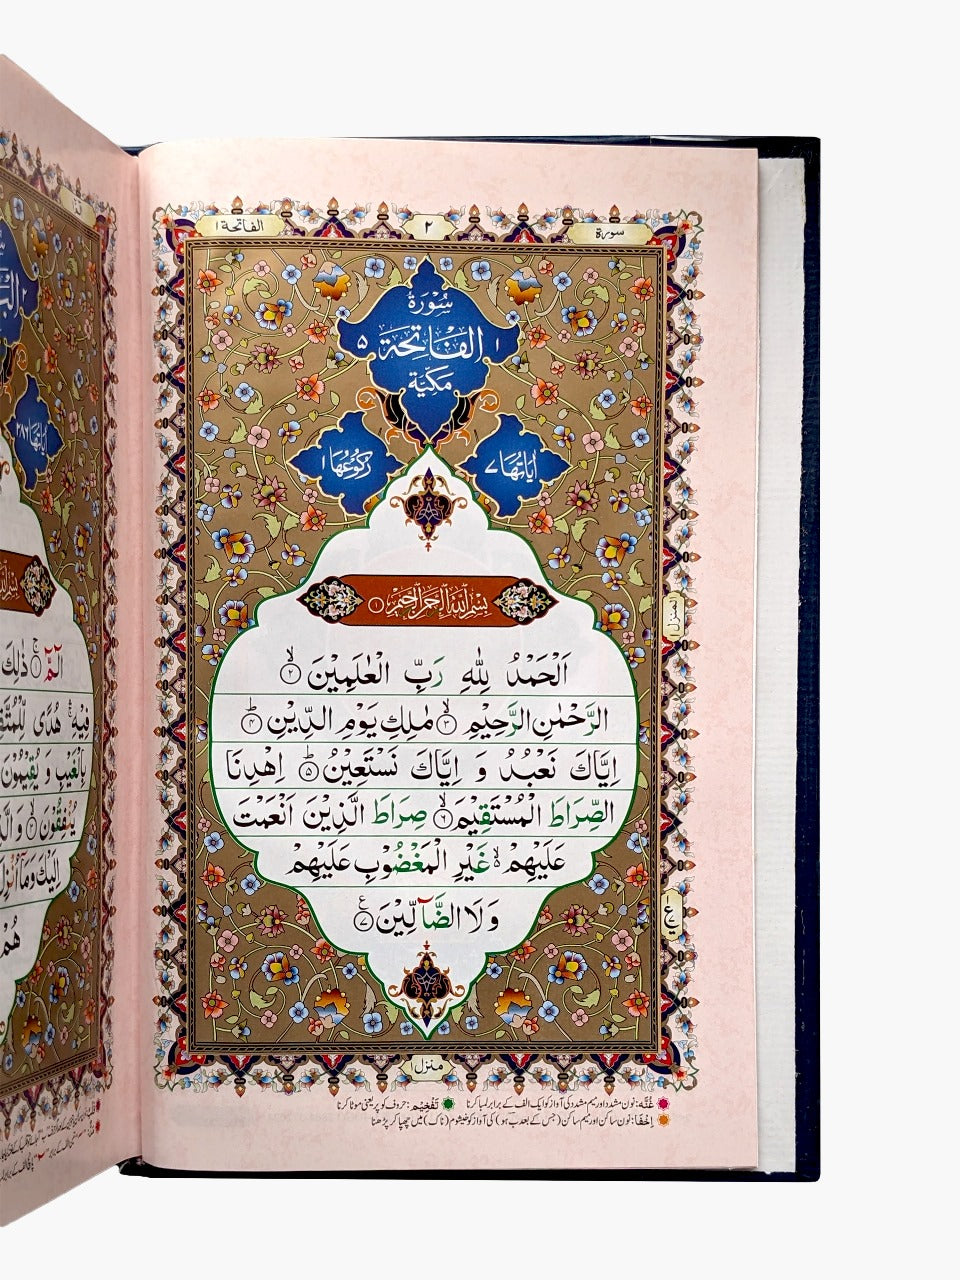 سورة
٢
الفاتحة ١
سُوْرَةُ
١ الفَاتِحَة ٥
مَكِّيَّة
اٰيَاتُهَا ٧
رُكُوْعُهَا ١
بِسْمِ اللّٰهِ الرَّحْمٰنِ الرَّحِيْمِ ١
اَلْحَمْدُ لِلّٰهِ رَبِّ الْعٰلَمِيْنَ ۙ ٢
الرَّحْمٰنِ الرَّحِيْمِ ۙ ٣ مٰلِكِ يَوْمِ الدِّيْنِ ؕ ٤
اِيَّاكَ نَعْبُدُ وَ اِيَّاكَ نَسْتَعِيْنُ ؕ ٥ اِهْدِنَا
الصِّرَاطَ الْمُسْتَقِيْمَ ۙ ٦ صِرَاطَ الَّذِيْنَ اَنْعَمْتَ
عَلَيْهِمْ ۙ۬ غَيْرِ الْمَغْضُوْبِ عَلَيْهِمْ
وَ لَا الضَّآلِّيْنَ ٧ ع
المنزل ١
ع
منزل ١
غُنَّه: نون مشدد اور میم مشدد کی آواز کو ایک الف کے برابر لمبا کرنا تَفْخِيْم: حروف کو پر یعنی موٹا کرنا
اِخفَا: نون ساکن اور میم ساکن (جس کے بعد ب ہو) کی آواز کو خیشوم (ناک) میں چھپا کر پڑھنا
اٰيَاتُهَا ٢٨٦
الٓمّٓ ۚ ١ ذٰلِكَ
فِيْهِ ۛ هُدًى لِّلْمُتَّقِ
بِالْغَيْبِ وَ يُقِيْمُوْنَ
يُنْفِقُوْنَ ۙ ٣ وَ الَّذِ
اِلَيْكَ وَمَاۤ اُنْزِلَ
هُمْ